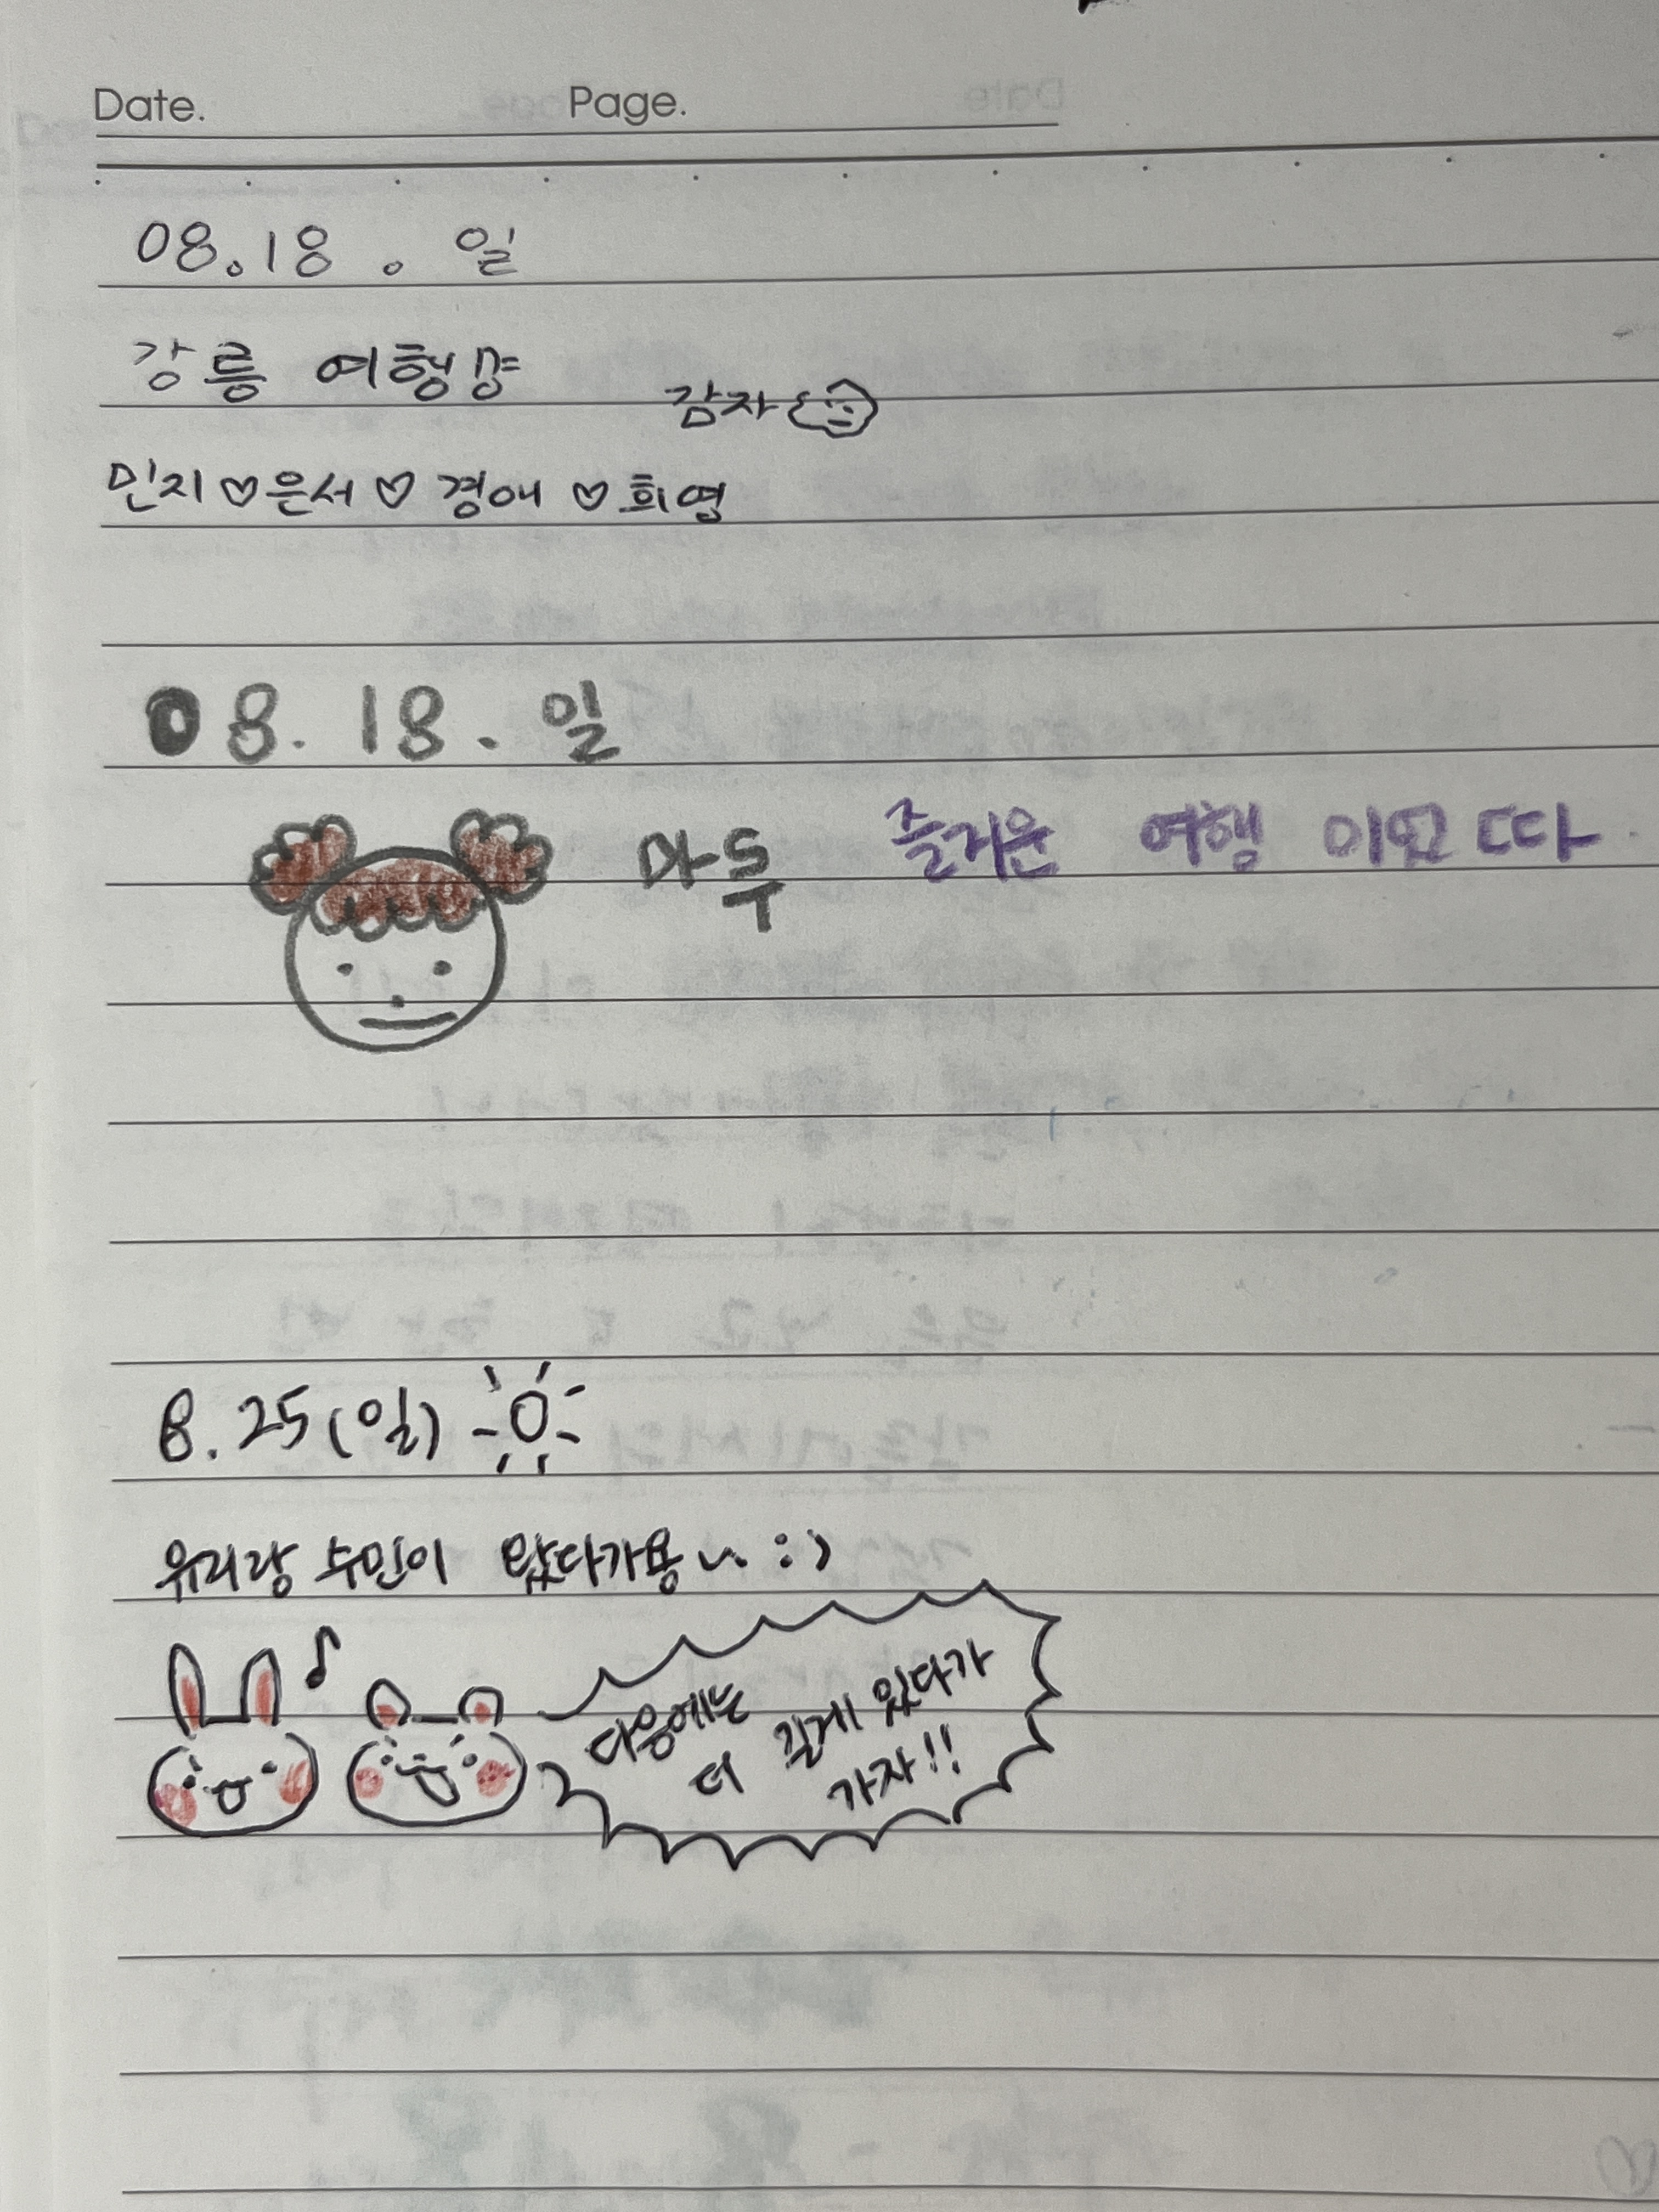 Date. Page.
08.18. 일
강릉 여행
감자
민지♡은서♡경애♡희영
08. 18. 일
마두 즐거운 여행 이였따
8. 25(일)
유리랑 수민이 왔다가용~ :)
다음에는
더 길게 있다가
가자!!